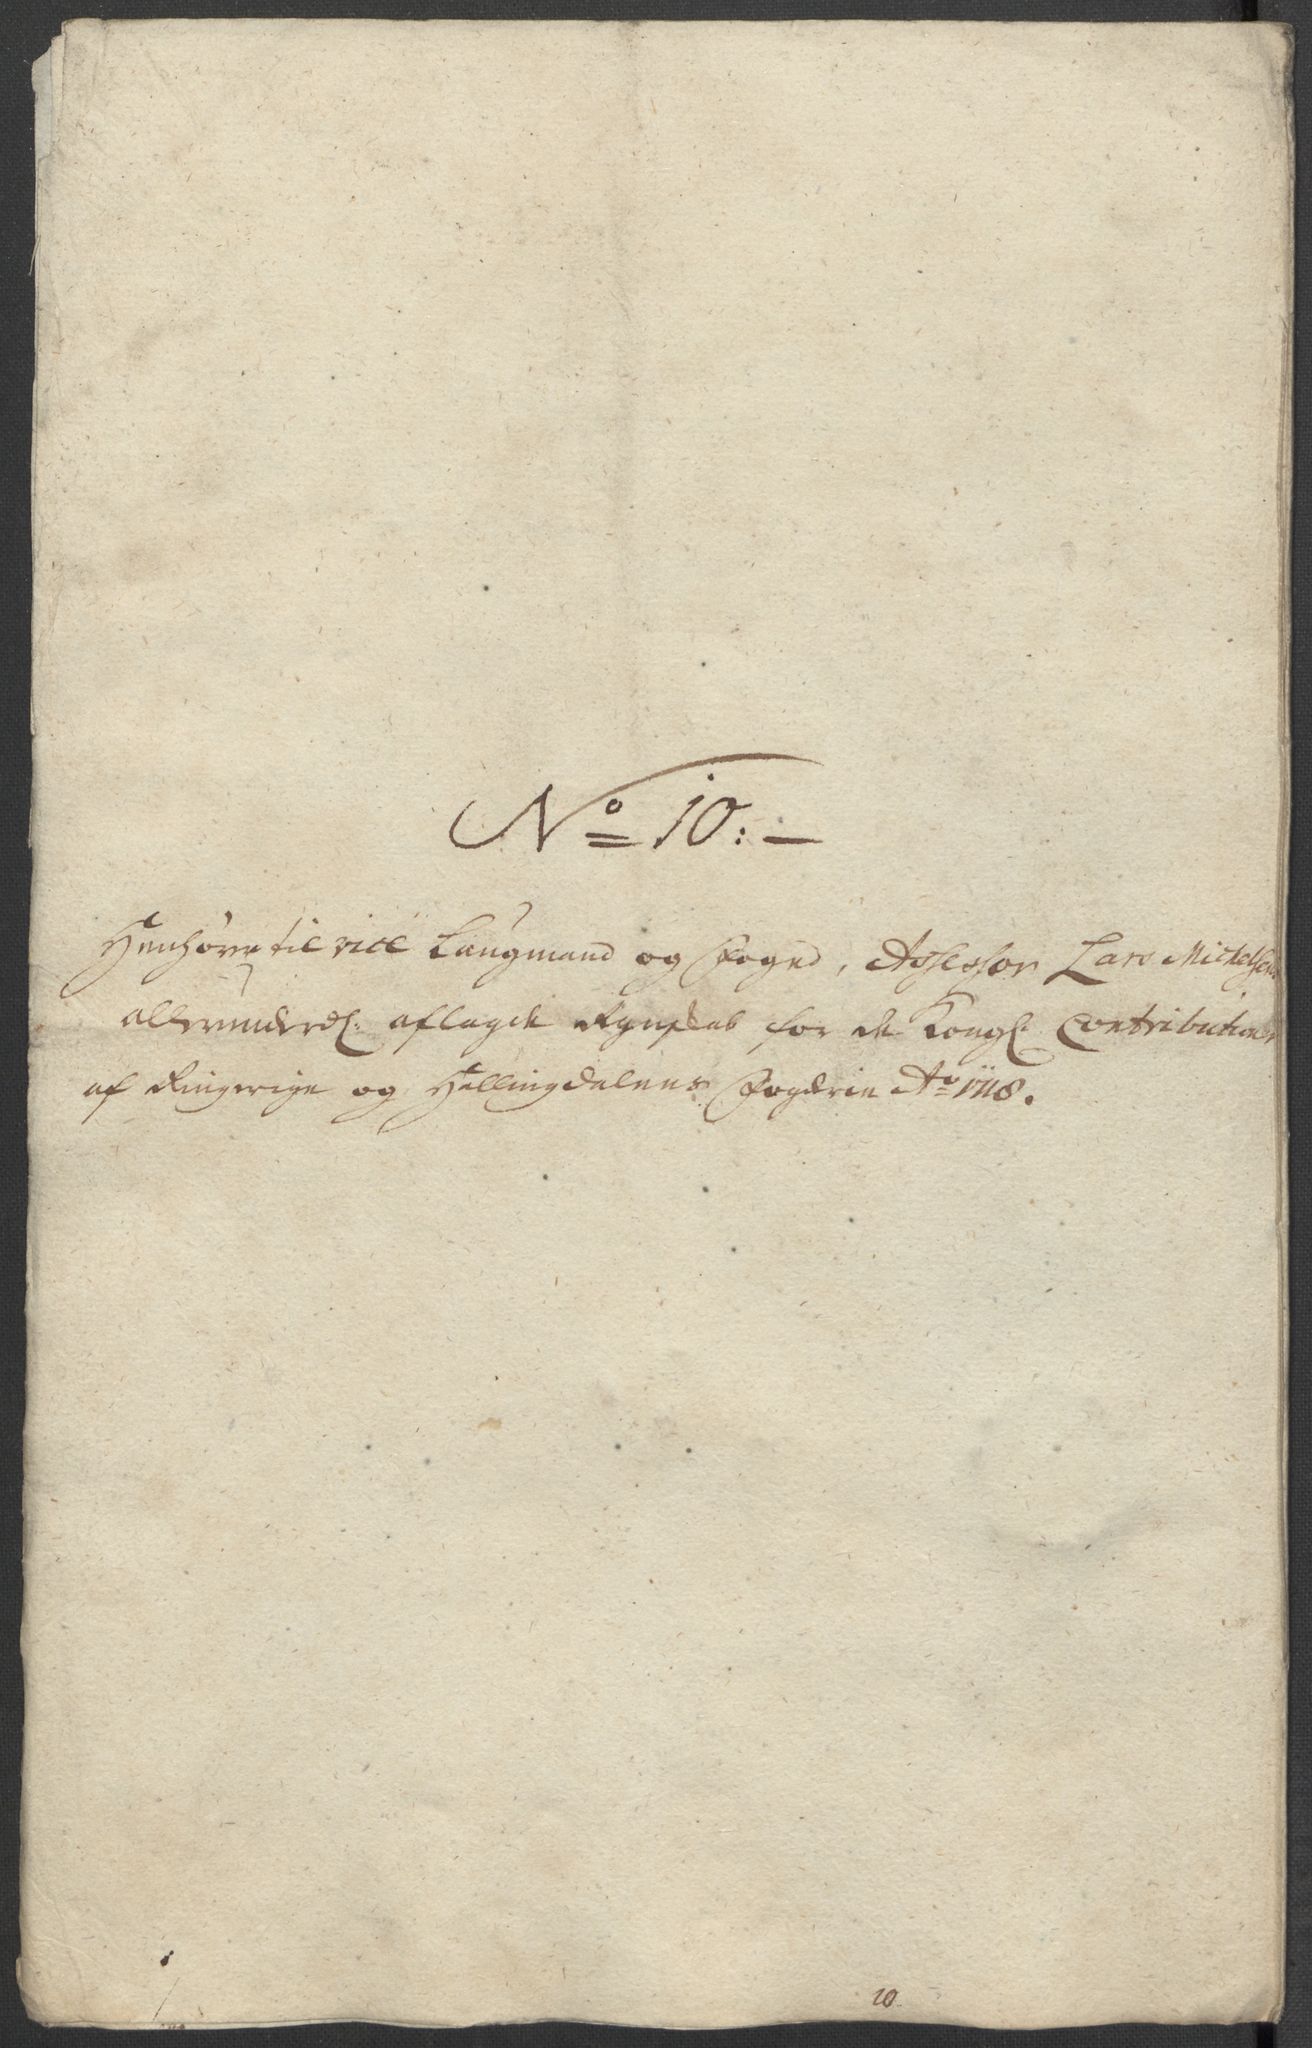 No 10: —
Henhører til vice Laugmand og Foged, Assessor Lars Michelsens
allerunderd: aflagde Regnskab for de Kongl: Contributioner
af Ringerige og Hallingdalens Fogderie Ao 1718.
10